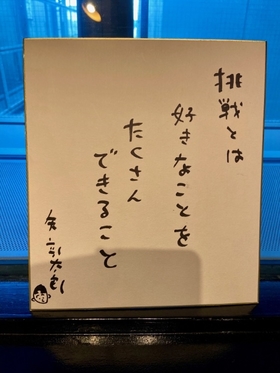 挑戦とは
好きなことを
たくさん
できること
矢部太郎